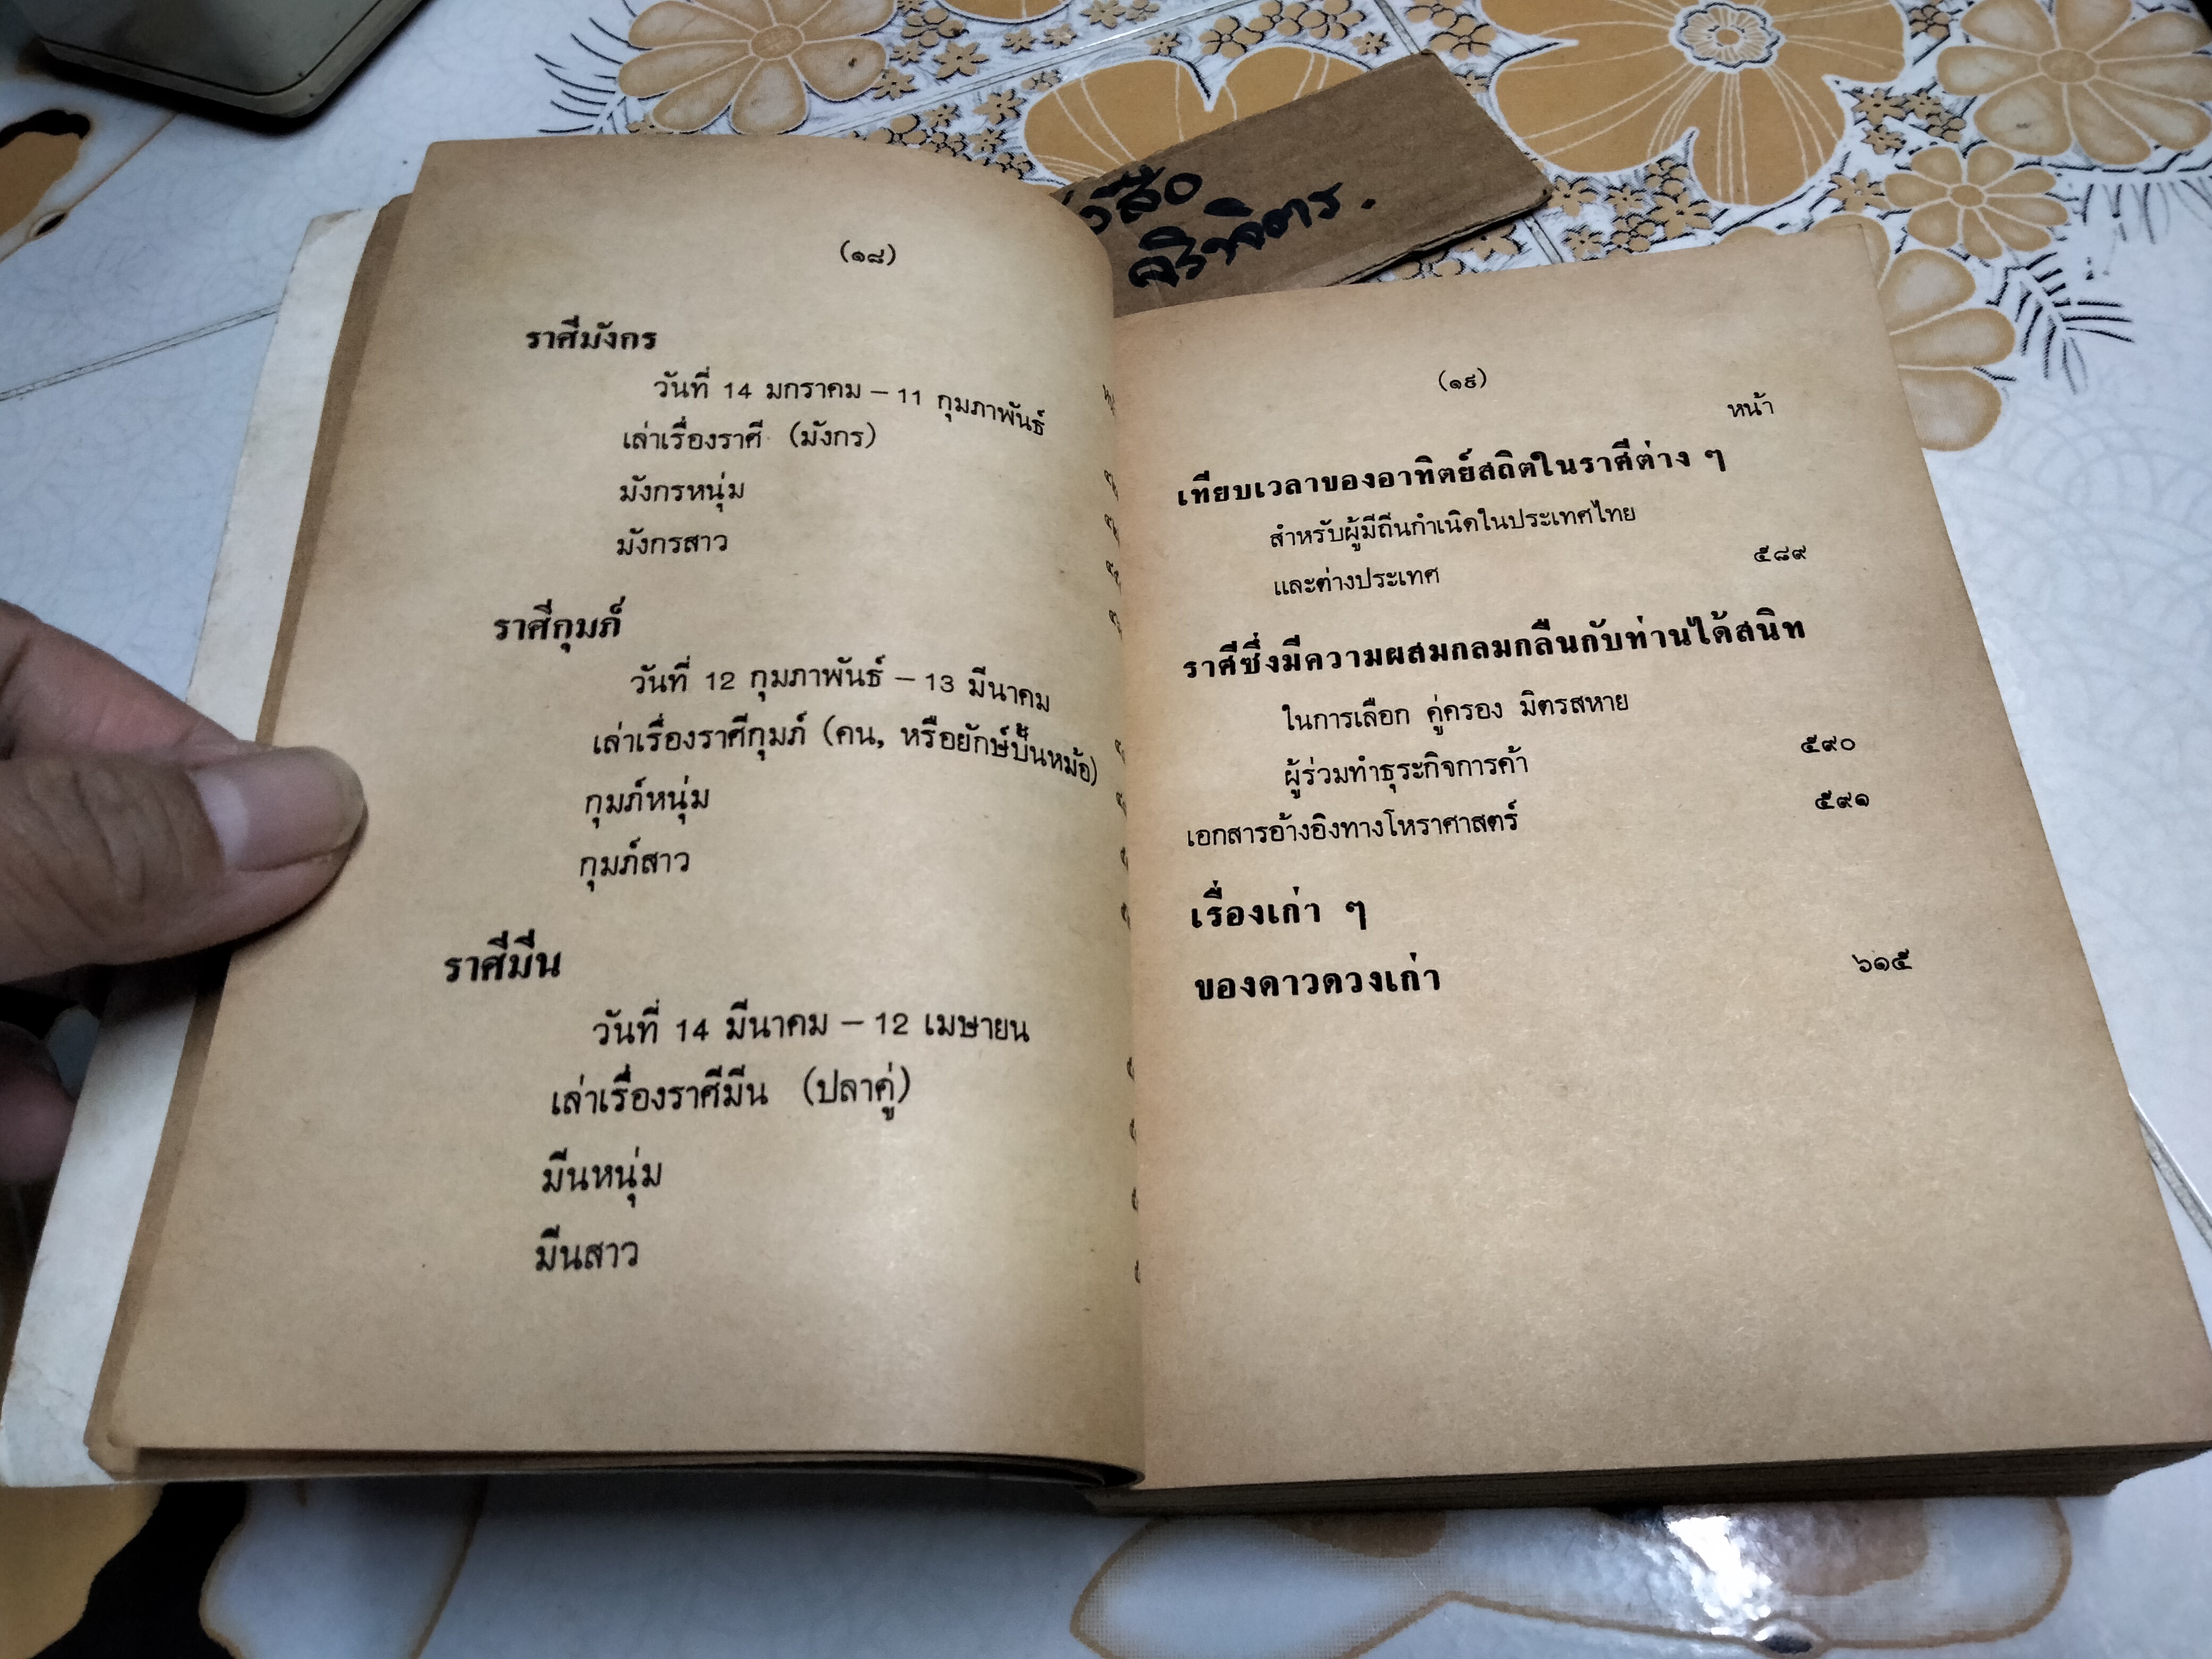 (๑๘)
ราศีมังกร
วันที่ 14 มกราคม – 11 กุมภาพันธ์
เล่าเรื่องราศี (มังกร)
มังกรหนุ่ม
มังกรสาว
ราศีกุมภ์
วันที่ 12 กุมภาพันธ์ – 13 มีนาคม
เล่าเรื่องราศีกุมภ์ (คน, หรือยักษ์ปั้นหม้อ)
กุมภ์หนุ่ม
กุมภ์สาว
ราศีมีน
วันที่ 14 มีนาคม – 12 เมษายน
เล่าเรื่องราศีมีน (ปลาคู่)
มีนหนุ่ม
มีนสาว
(๑๙)
หน้า
เทียบเวลาของอาทิตย์สถิตในราศีต่าง ๆ
สำหรับผู้มีถิ่นกำเนิดในประเทศไทย
และต่างประเทศ ๕๘๙
ราศีซึ่งมีความผสมกลมกลืนกับท่านได้สนิท
ในการเลือก คู่ครอง มิตรสหาย
ผู้ร่วมทำธุระกิจการค้า ๕๙๐
เอกสารอ้างอิงทางโหราศาสตร์ ๕๙๑
เรื่องเก่า ๆ
ของดาวดวงเก่า ๖๑๕